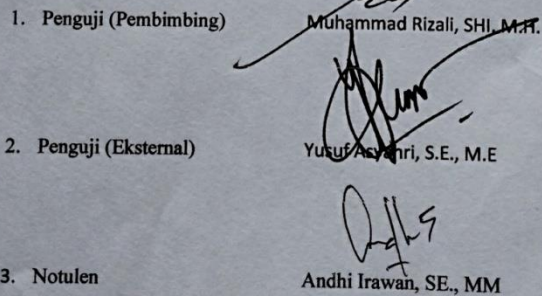 1. Penguji (Pembimbing) Muhammad Rizali, SHI, M.H.
2. Penguji (Eksternal) Yusuf Asyahri, S.E., M.E
3. Notulen Andhi Irawan, SE., MM